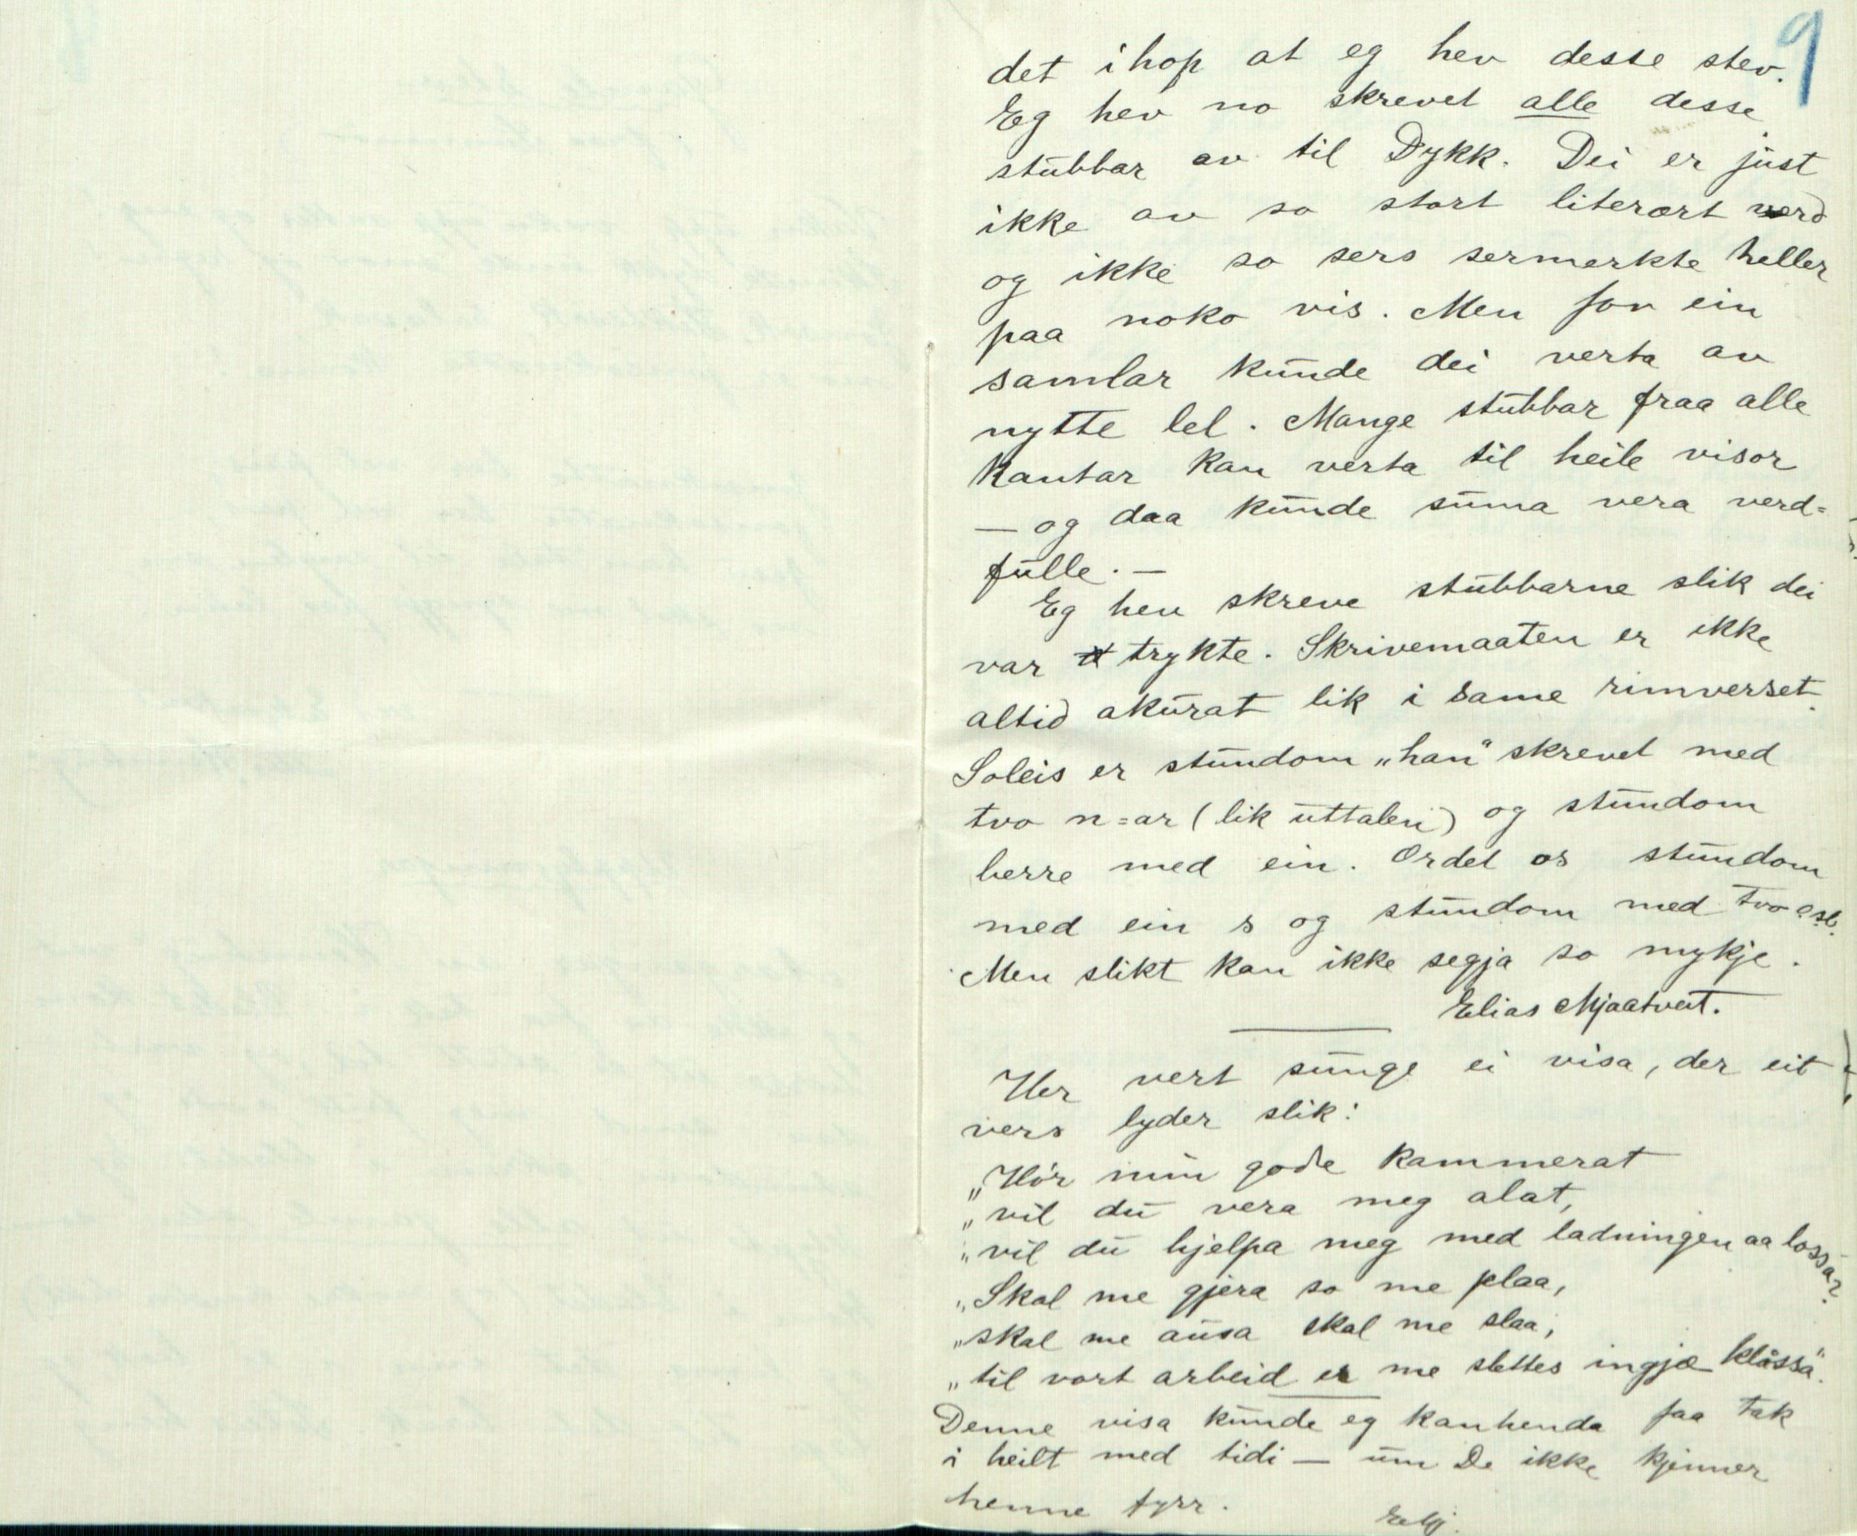 9
det ihop at eg hev desse stev.
Eg hev no skrevet alle desse
stubbar av til Dykk. Dei er just
ikke av so stort literært verd
og ikke so sers sermerkte heller
paa noko vis. Men for ein
samlar kunde dei verta av
nytte lel. Mange stubbar fraa alle
kantar kan verta til heile visor
— og daa kunde suma vera verd=
fulle. —
Eg hev skreve stubbarne slik dei
var trykte. Skrivemaaten er ikke
altid akurat lik i same rimverset.
Soleis er stundom „han" skrevet med
tvo n=ar (lik uttalen) og stundom
berre med ein. Ordet os stundom
med ein s og stundom med tvo osb.
Men slikt kan ikke segja so mykje.
Elias Mjaatveit.
Her vert sunge ei visa, der eit
vers lyder slik:
„Hör min gode kammerat
„vil du vera meg alat,
„vil du hjelpa meg med ladningen aa lossa?
„Skal me gjera so me plaa,
„skal me ausa skal me slaa,
„til vort arbeid er me slettes ingjæ klossa".
Denne visa kunde eg kanhenda faa tak
i heilt med tidi — um De ikke kjenner
henne fyrr.